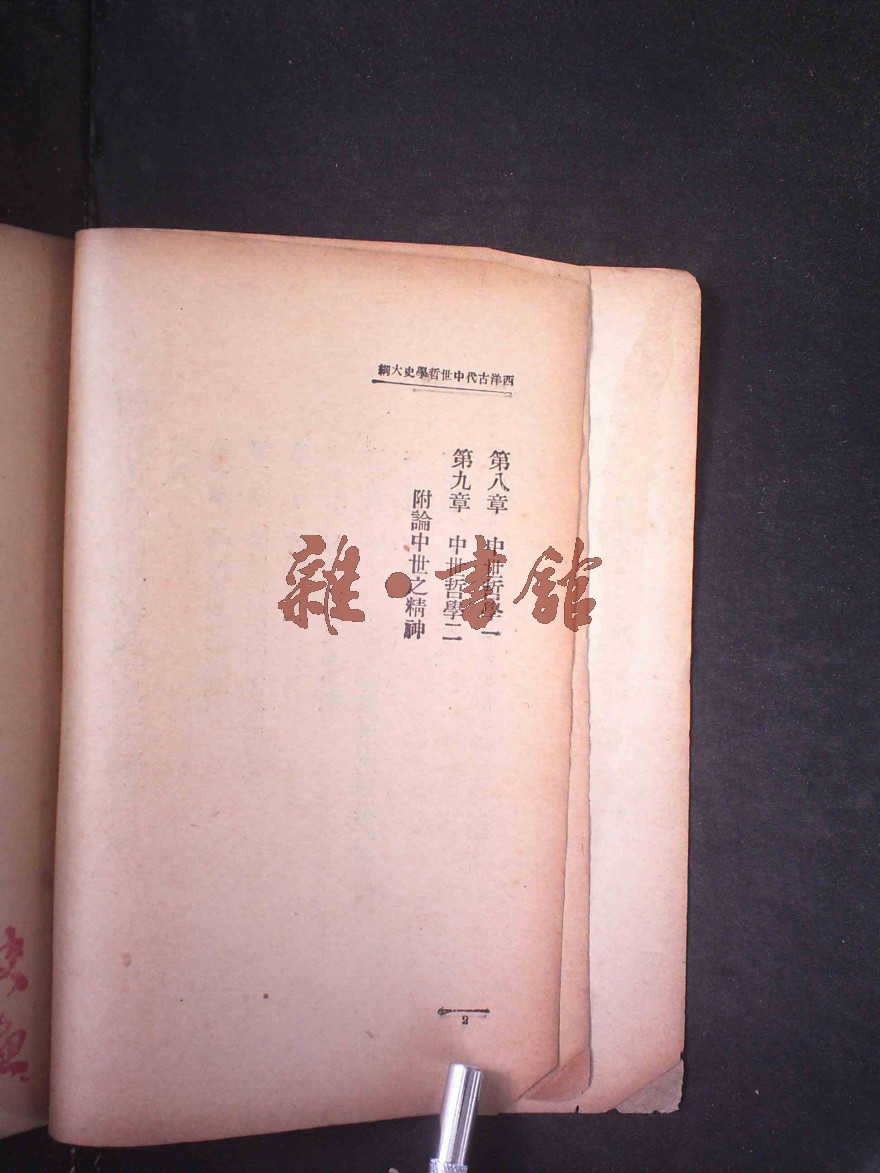 西洋古代中世哲學史大綱
第八章 中世哲學一
第九章 中世哲學二
附論中世之精神
2
雜·書館